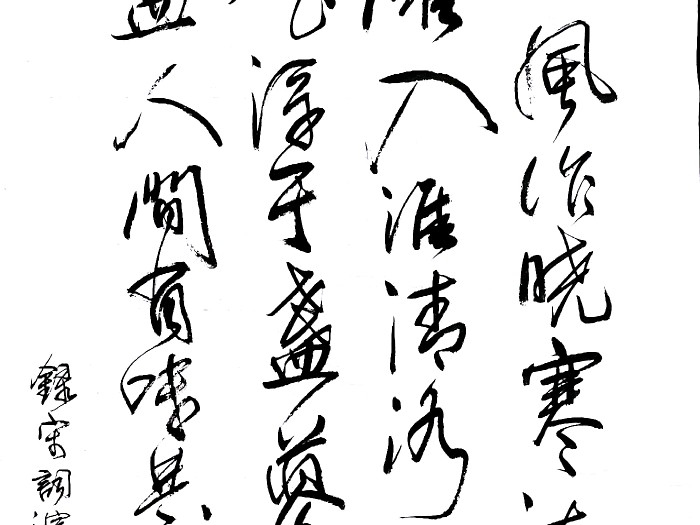 風作晓寒
入淮清洛
浮午盞蓼
人間有味是
録宋詞浣